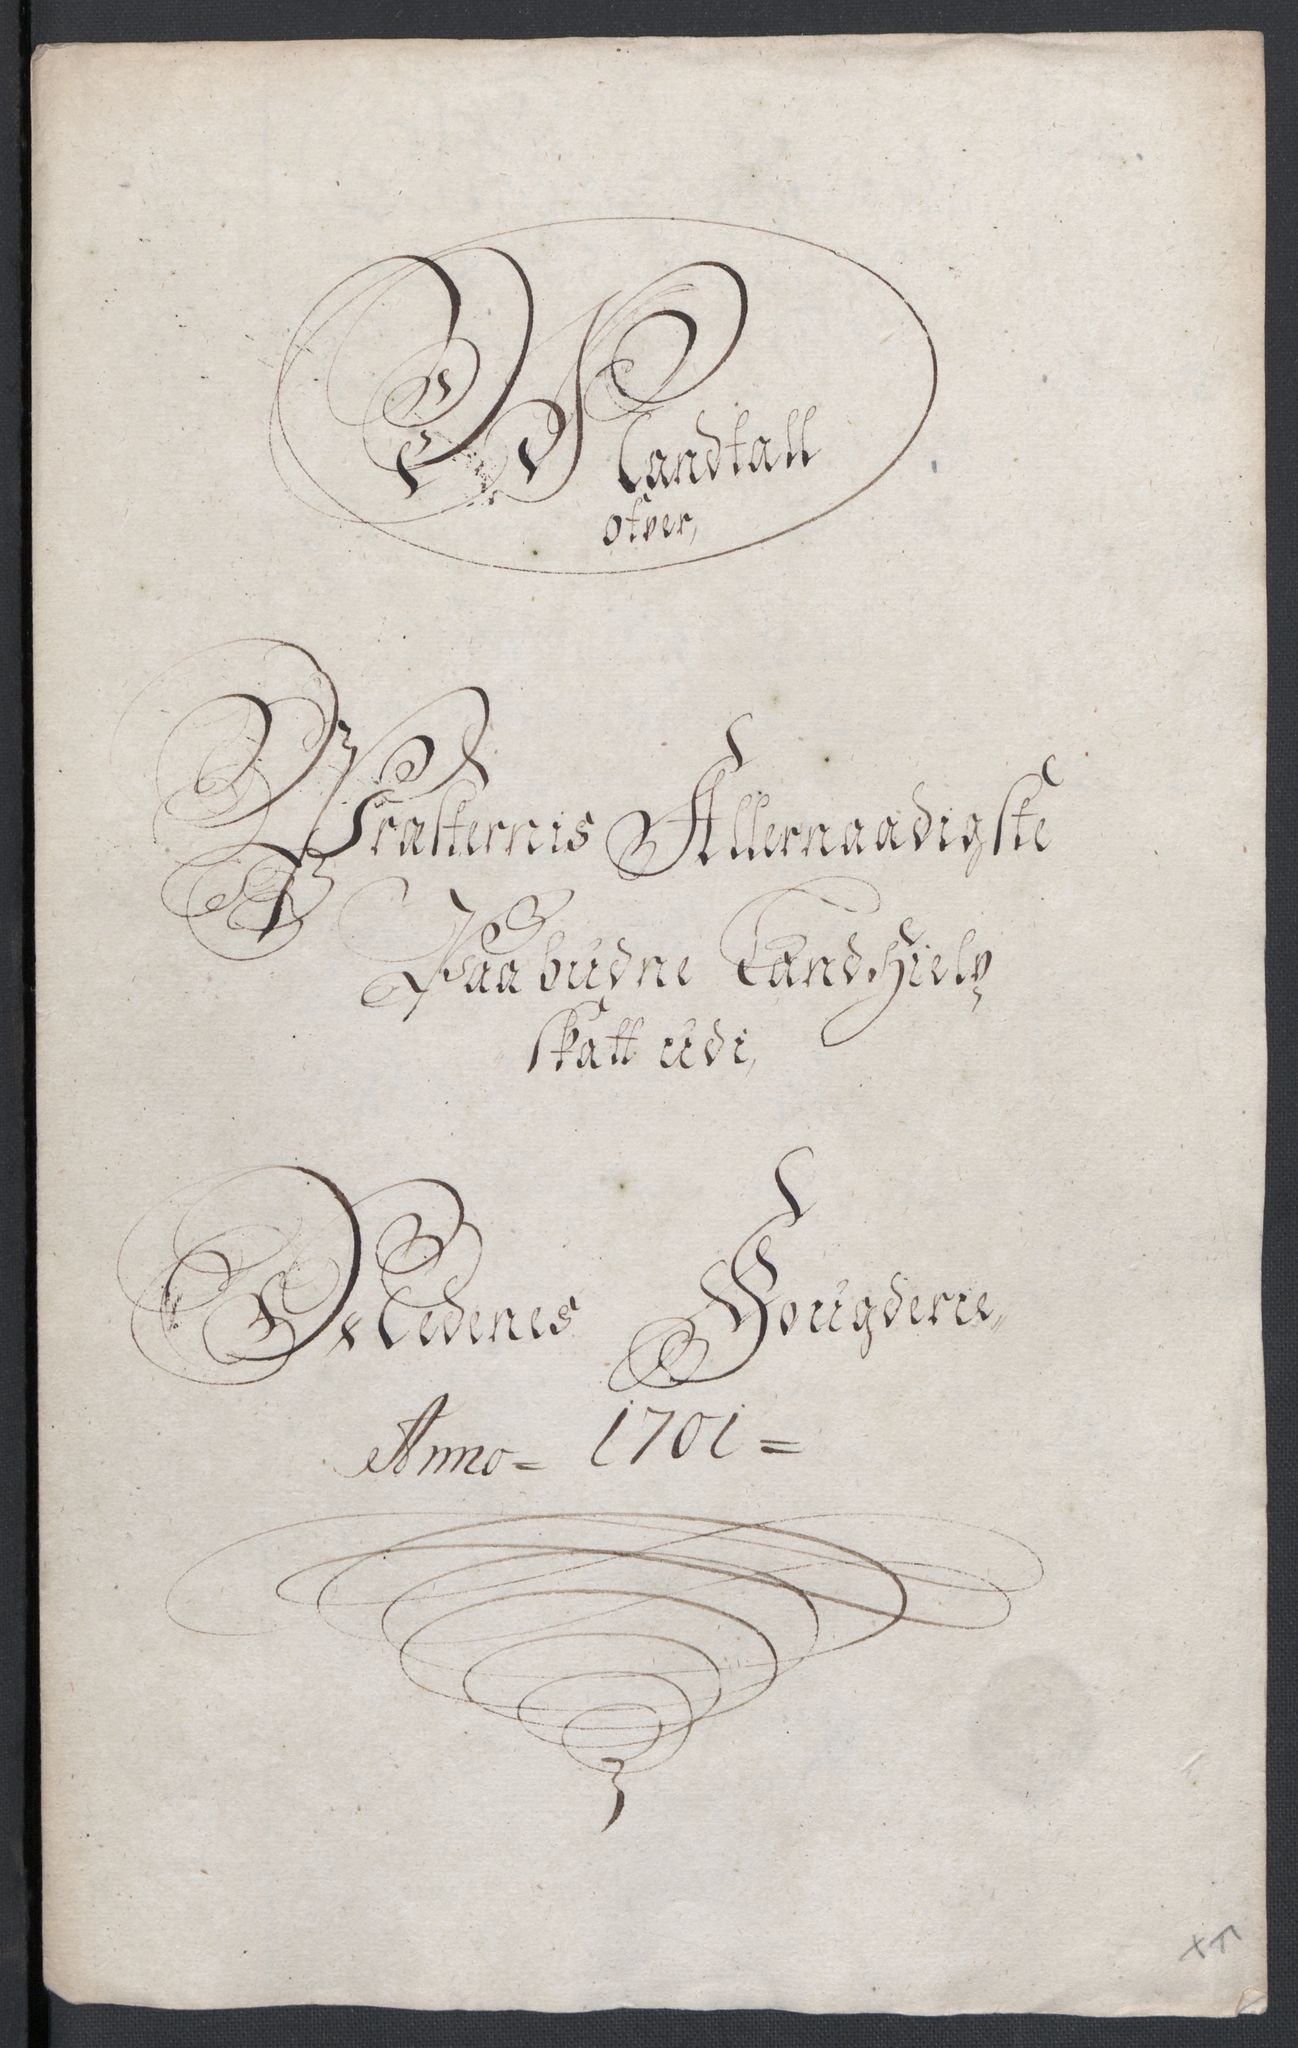 Mandtall
ofver,
Præsternis Allernaadigste
Paabudne Landhielp
skatt udi,
Nedenes Fougderie,
Anno = 1701 =